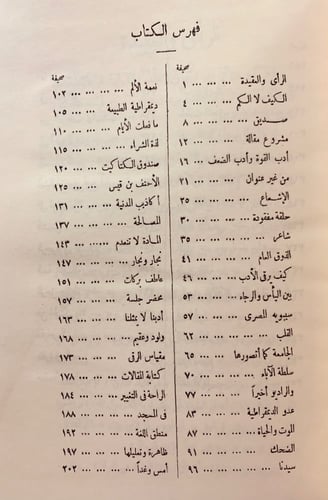 فهرس الكتاب
صحيفة
الرأى والعقيدة ... ... ... ١
الكيف لا الكم ... ... ... ٤
صديق ... ... ... ... ٨
مشروع مقالة ... ... ... ١٢
أدب القوة وأدب الضعف ... ١٦
من غير عنوان ... ... ... ٢١
الإشعاع ... ... ... ... ٢٥
حلقة مفقودة ... ... ... ٣٠
شاعر ... ... ... ... ٣٥
الذوق العام ... ... ... ٤١
كيف يرقى الأدب ... ... ٤٦
بين اليأس والرجاء ... ... ٥٣
سيبويه المصرى ... ... ٥٧
القلب ... ... ... ... ٦٢
الجامعة كما أتصورها ... ... ٦٥
سلطة الآباء ... ... ... ٧٠
والراديو أخيراً ... ... ... ٧٧
عدو الديمقراطية ... ... ٨٣
الموت والحياة ... ... ... ٨٧
الضحك ... ... ... ... ٩١
سيدنا ... ... ... ... ٩٦
صحيفة
نعمة الألم ... ... ... ... ١٠٢
ديمقراطية الطبيعة ... ... ١٠٥
ما فعلت الأيام ... ... ... ١١٠
لذة الشراء ... ... ... ... ١١٥
صندوق الكتاكيت ... ... ١٢٠
الأحنف بن قيس ... ... ١٢٥
أكاذيب المدنية ... ... ... ١٣١
المصالحة ... ... ... ... ١٣٧
المادة لا تنعدم ... ... ... ١٤٣
نجار ونجار ... ... ... ... ١٤٧
عاطف بركات ... ... ... ١٥١
محضر جلسة ... ... ... ١٥٧
أدبنا لا يمثلنا ... ... ... ١٦٣
ولود وعقيم ... ... ... ١٦٨
مقياس الرقى ... ... ... ١٧٣
كتابة المقالات ... ... ... ١٧٨
الراحة فى التغيير ... ... ١٨٤
فى المسجد ... ... ... ١٨٨
منطق اللغة ... ... ... ١٩٢
ظاهرة وتعليلها ... ... ... ١٩٧
أمس وغداً ... ... ... ٢٠٢